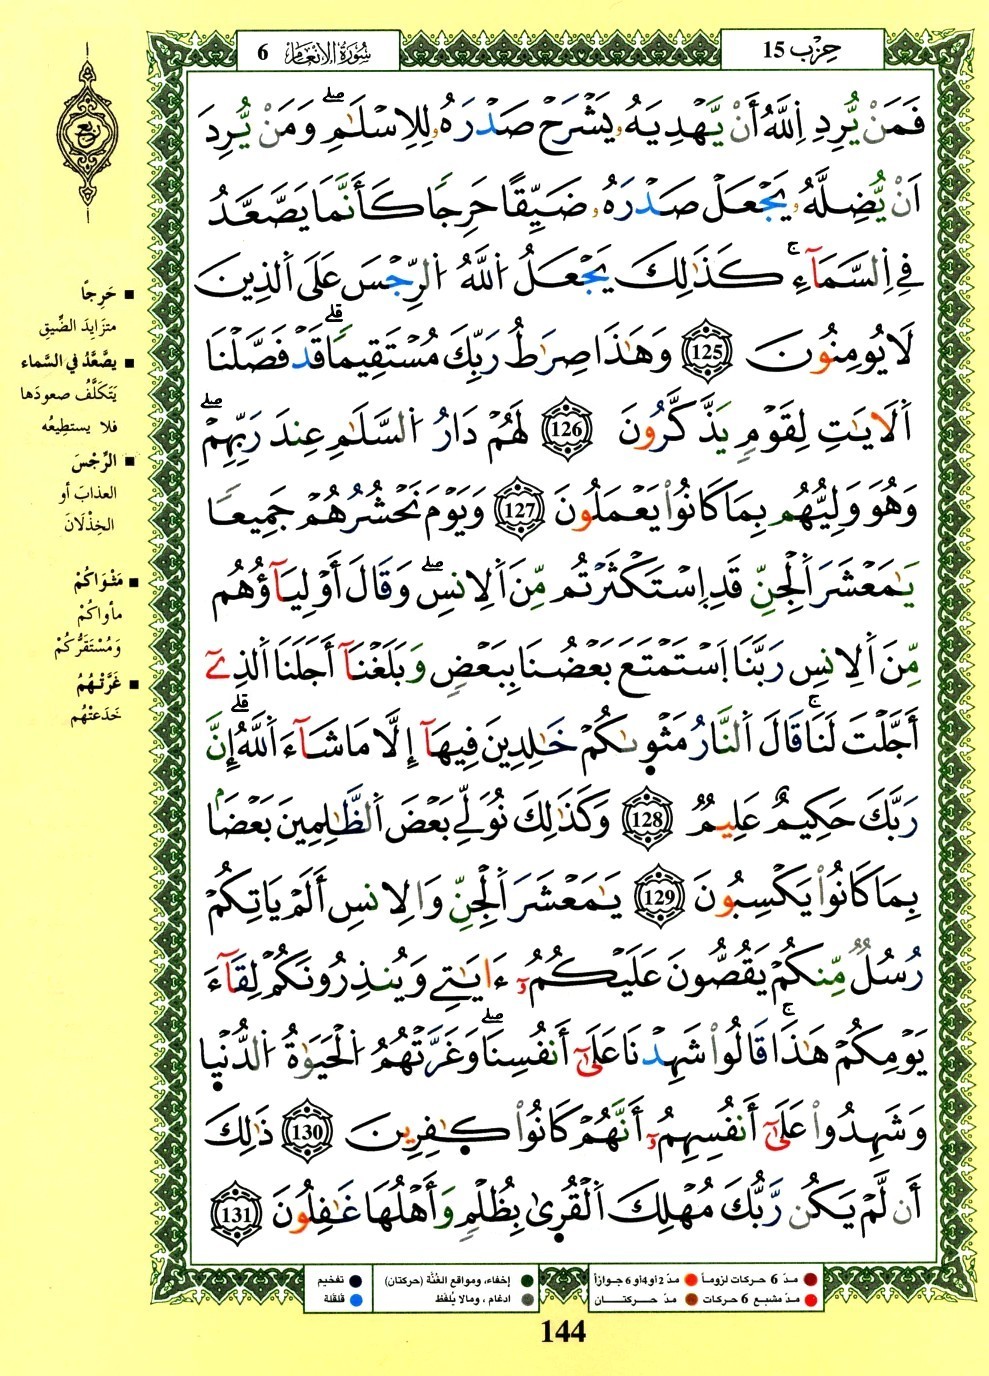 حِزْب 15
سُورَةُ الأَنْعَام 6
فَمَنْ يُّرِدِ اِ۬للَّهُ أَنْ يَّهْدِيَهُۥ يَشْرَحْ صَدْرَهُۥ لِلِاسْلَٰمِۖ وَمَنْ يُّرِدَ
اَنْ يُّضِلَّهُۥ يَجْعَلْ صَدْرَهُۥ ضَيِّقًا حَرِجًا كَأَنَّمَا يَصَّعَّدُ
فِي اِ۬لسَّمَآءِۚ كَذَٰلِكَ يَجْعَلُ اُ۬للَّهُ اُ۬لرِّجْسَ عَلَى اَ۬لذِينَ
لَا يُومِنُونَ 125 وَهَٰذَا صِرَٰطُ رَبِّكَ مُسْتَقِيمًاۗ قَدْ فَصَّلْنَا
اَ۬لَايَٰتِ لِقَوْمٍ يَذَّكَّرُونَ 126 لَهُمْ دَارُ اُ۬لسَّلَٰمِ عِندَ رَبِّهِمْۖ
وَهُوَ وَلِيُّهُم بِمَا كَانُواْ يَعْمَلُونَ 127 وَيَوْمَ نَحْشُرُهُمْ جَمِيعًا
يَٰمَعْشَرَ اَ۬لْجِنِّ قَدِ اِ۪سْتَكْثَرْتُم مِّنَ اَ۬لِانسِۖ وَقَالَ أَوْلِيَآؤُهُم
مِّنَ اَ۬لِانسِ رَبَّنَا اَ۪سْتَمْتَعَ بَعْضُنَا بِبَعْضٍ وَبَلَغْنَآ أَجَلَنَا اَ۬لذِےٓ
أَجَّلْتَ لَنَاۚ قَالَ اَ۬لنَّارُ مَثْو۪ىٰكُمْ خَٰلِدِينَ فِيهَآ إِلَّا مَا شَآءَ اَ۬للَّهُۗ إِنَّ
رَبَّكَ حَكِيمٌ عَلِيمٌ 128 وَكَذَٰلِكَ نُوَلِّے بَعْضَ اَ۬لظَّٰلِمِينَ بَعْضَۢا
بِمَا كَانُواْ يَكْسِبُونَ 129 يَٰمَعْشَرَ اَ۬لْجِنِّ وَالِانسِ أَلَمْ يَاتِكُمْ
رُسُلٌ مِّنكُمْ يَقُصُّونَ عَلَيْكُمُۥٓ ءَايَٰتِے وَيُنذِرُونَكُمْ لِقَآءَ
يَوْمِكُمْ هَٰذَاۚ قَالُواْ شَهِدْنَا عَلَىٰٓ أَنفُسِنَاۖ وَغَرَّتْهُمُ اُ۬لْحَيَوٰةُ اُ۬لدُّنْي۪ا
وَشَهِدُواْ عَلَىٰٓ أَنفُسِهِمُۥٓ أَنَّهُمْ كَانُواْ كٰ۪فِرِينَ 130 ذَٰلِكَ
أَن لَّمْ يَكُن رَّبُّكَ مُهْلِكَ اَ۬لْقُر۪ىٰ بِظُلْمٍ وَأَهْلُهَا غَٰفِلُونَ 131
ربع
■ حَرِجًا
متزَايِدَ الضِّيقِ
■ يصَّعَّدُ في السَّماء
يَتكَلَّفُ صعودَها
فلا يستطِيعُه
■ الرِّجْسَ
العذابَ أو
الخِذْلَانَ
■ مَثْوَاكُمْ
مأواكُمْ
وَمُسْتَقَرُّكُمْ
■ غَرَّتْهُمُ
خَدَعتْهُم
● مدّ 6 حركات لزوماً ● مدّ 2 أو 4 أو 6 جوازاً
● مدّ مشبع 6 حركات ● مدّ حركتـــان
● إخفاء، ومواقع الغُنَّة (حركتان)
● ادغام ، ومالا يُلفظ
● تفخيم
● قلقلة
144